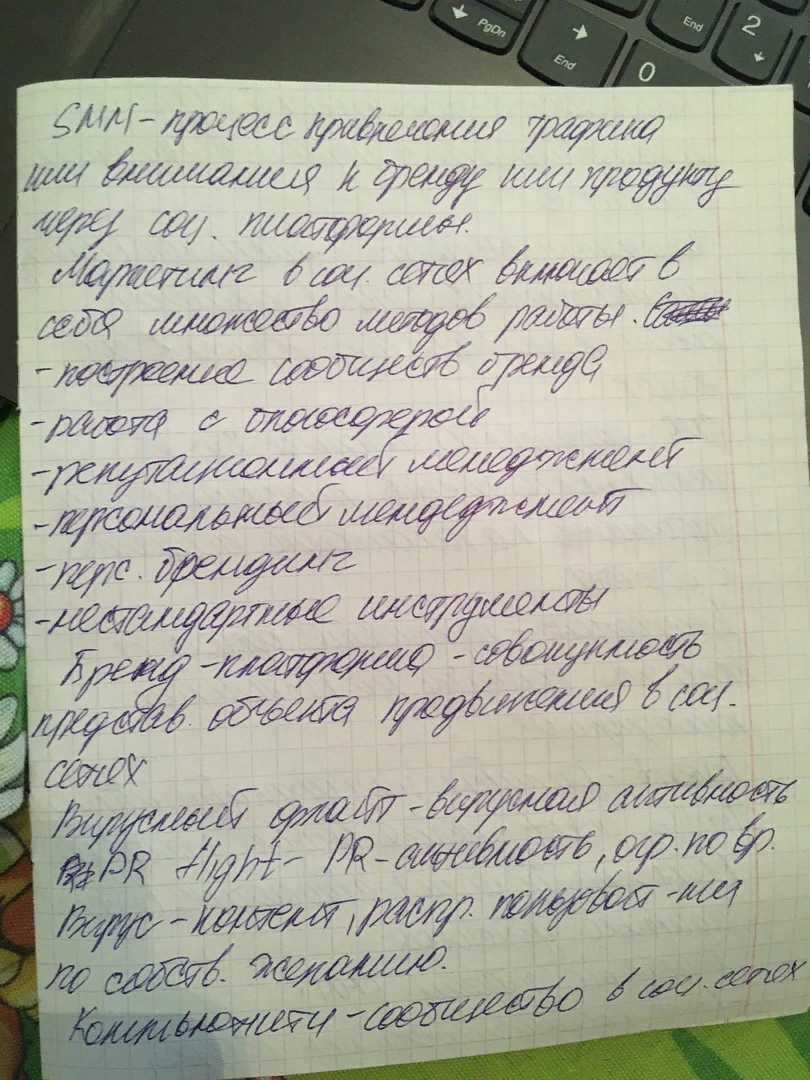 PgDn
End
End
2
0
SMM - процесс привлечения трафика
или внимания к бренду или продукту
через соц. платформы.
Маркетинг в соц. сетях включает в
себя множество методов работы.
- построение сообществ бренда
- работа с блогосферой
- репутационный менеджмент
- персональный мендеджмент
- перс. брендинг
- нестандартные инструменты
Бренд-платформа - совокупность
представ. объекта продвижения в соц.
сетях
Вирусный флайт - вирусная активность
PR flight - PR-активность, огр. по вр.
Вирус - контент, распр. пользоват-ми
по собств. желанию.
Коммьюнити - сообщество в соц. сетях